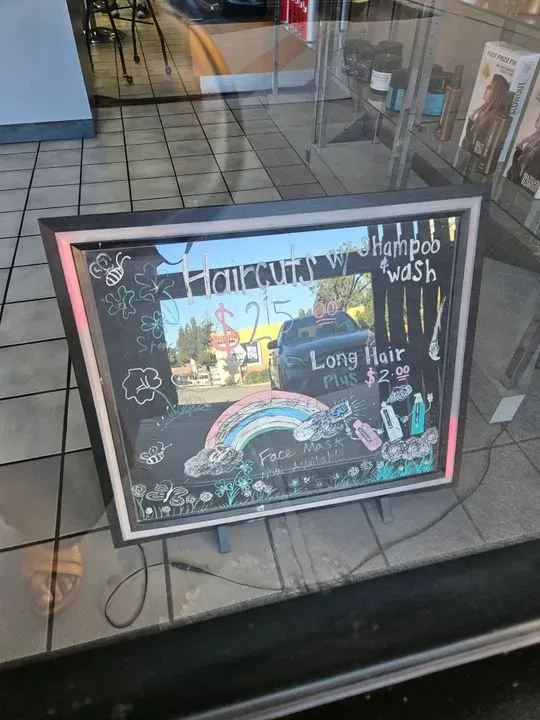 Haircuts w/ Shampoo
& wash
$25.00
Long Hair
Plus $2.00
Face Mask
Now Available
FAST FRIZZ FIX